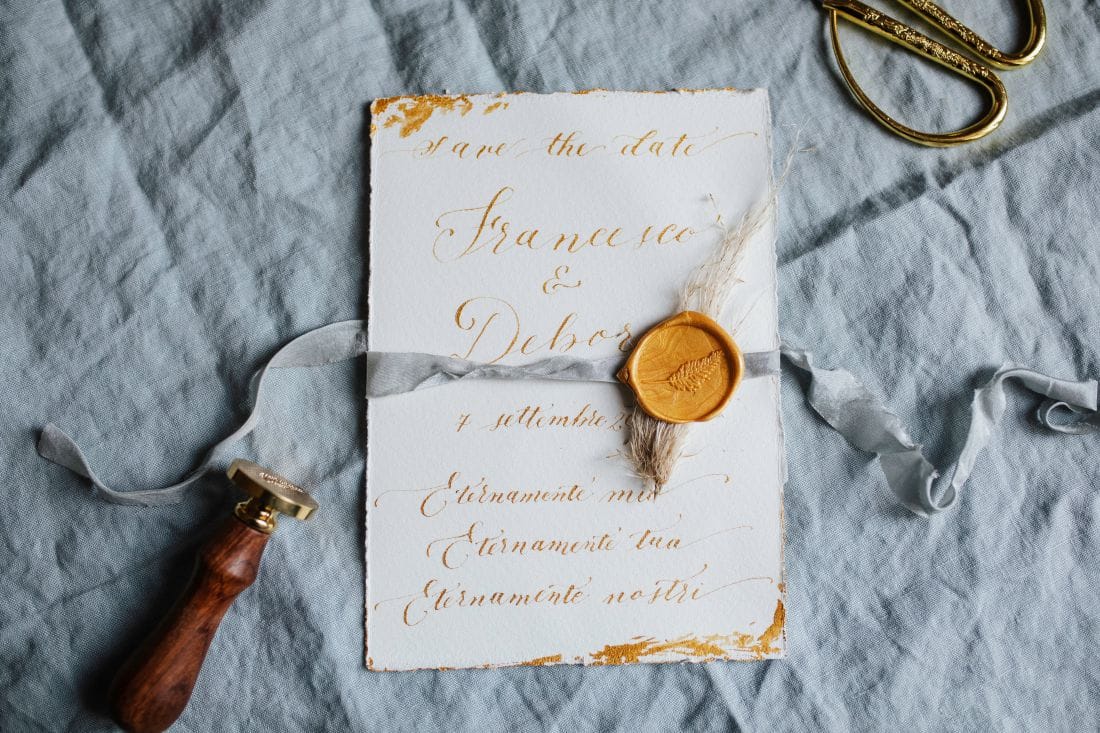 save the date
Francesco
&
Debor
7 settembre 2
Eternamente mio
Eternamente tua
Eternamente nostri